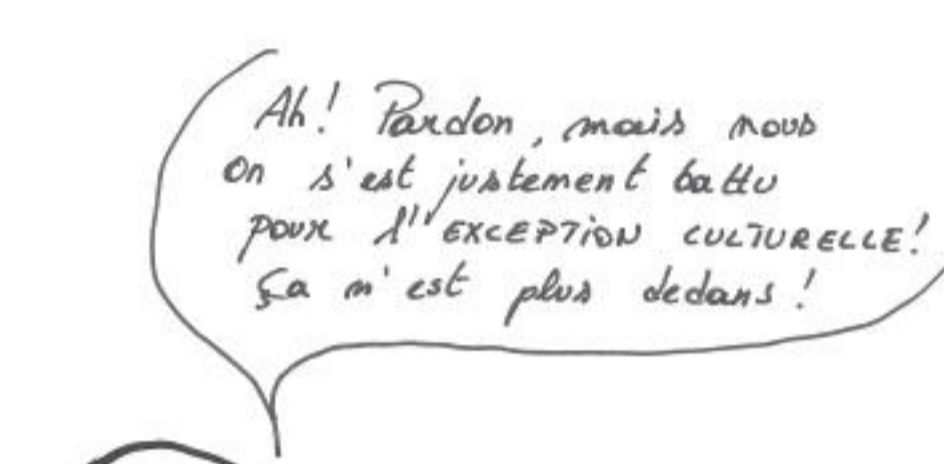 Ah! Pardon, mais nous
on s'est justement battu
pour l'"EXCEPTION CULTURELLE!
Ça n'est plus dedans!